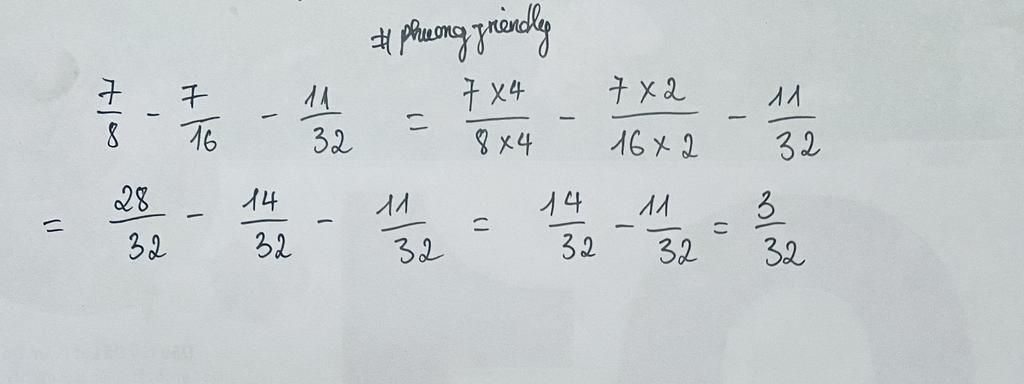 # phuong friendly
7/8 - 7/16 - 11/32 = 7 x 4/8 x 4 - 7 x 2/16 x 2 - 11/32
= 28/32 - 14/32 - 11/32 = 14/32 - 11/32 = 3/32